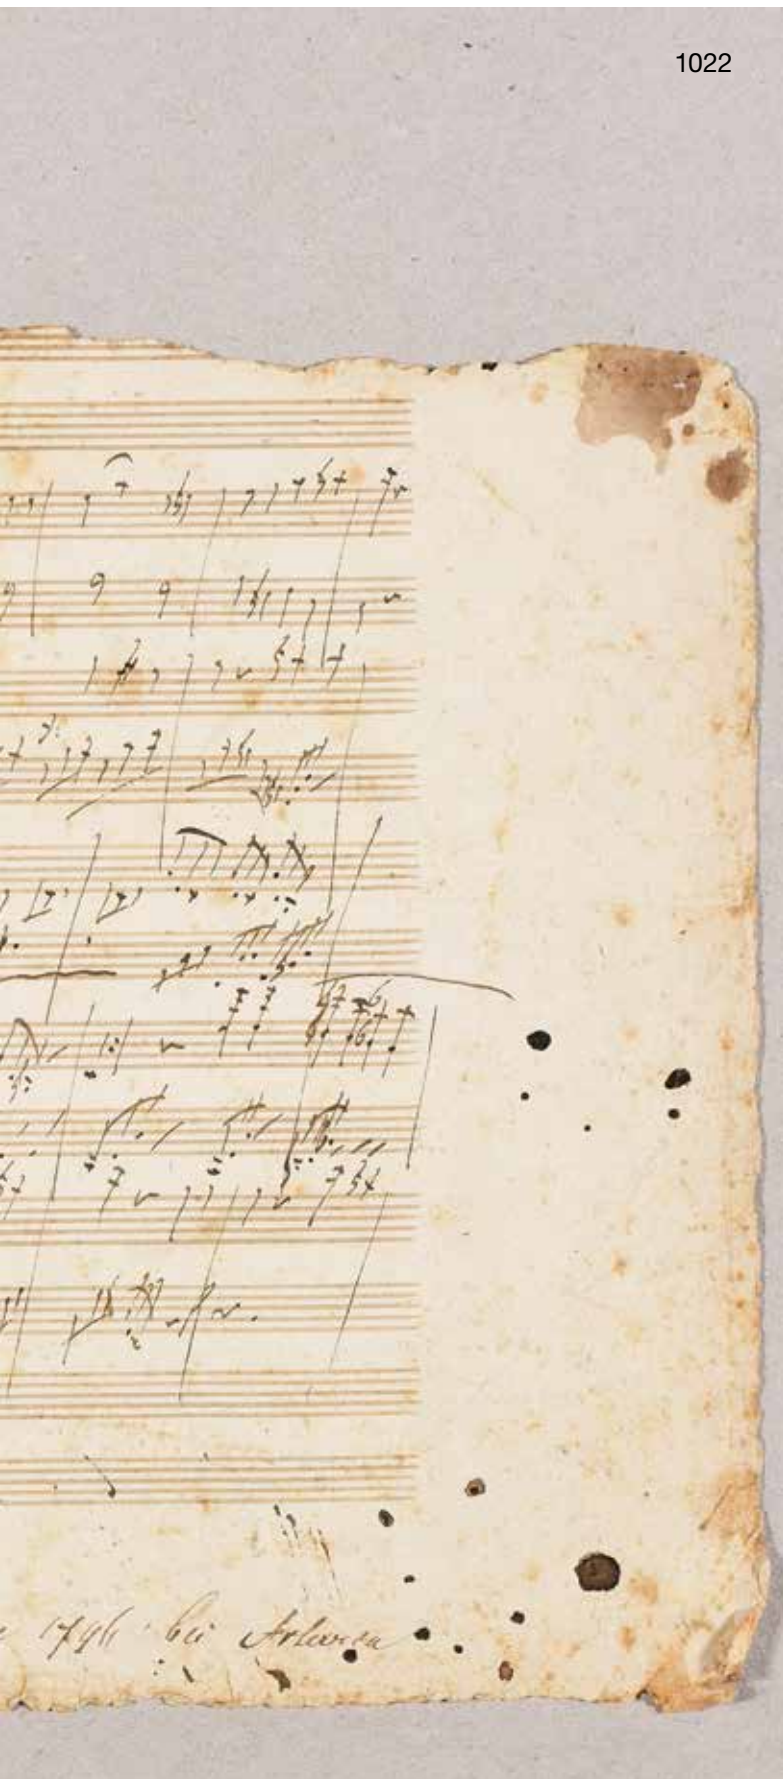 1022
1796 bei Artaria